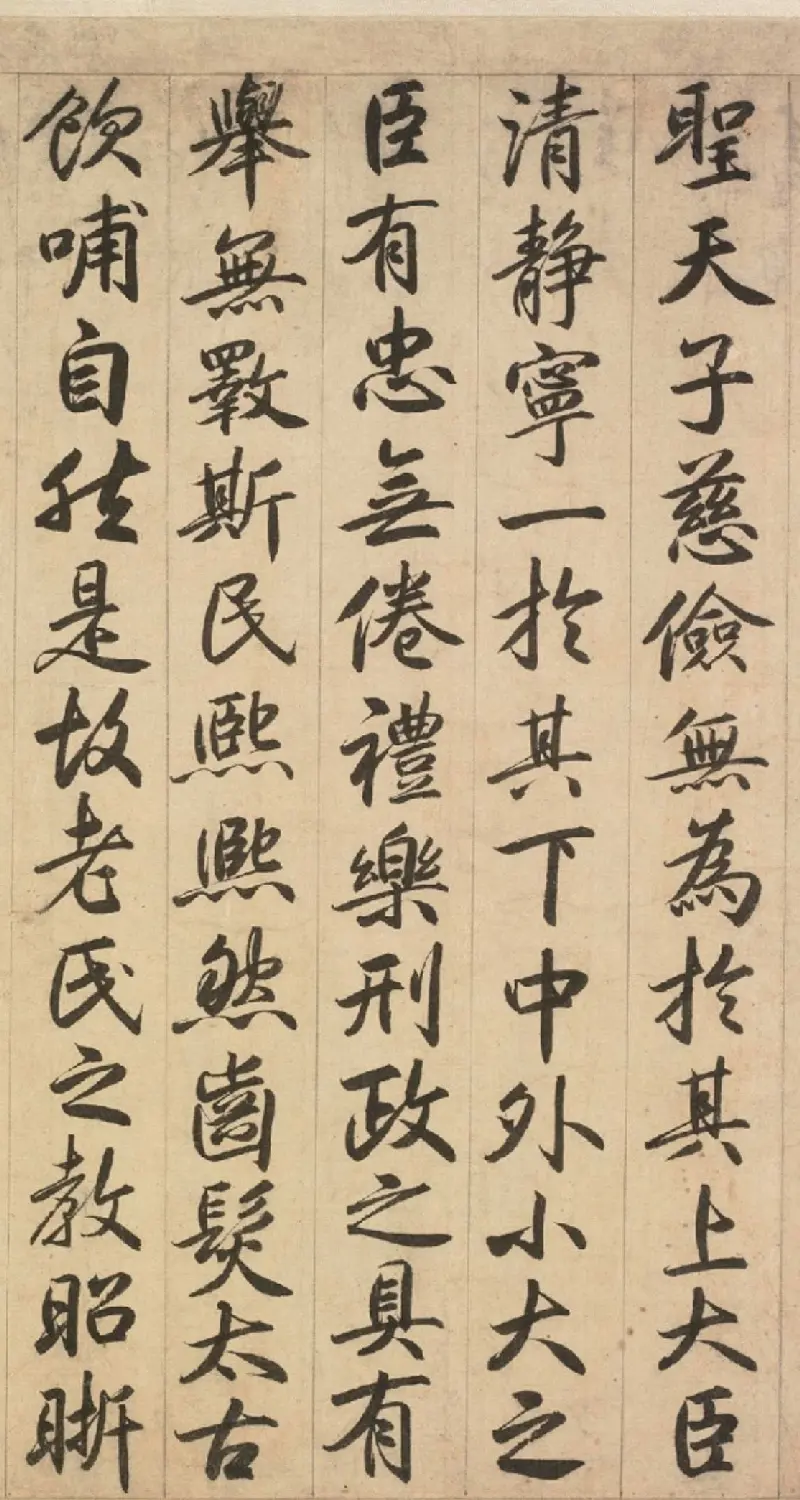 聖天子慈儉無為於其上大臣
清静寧一於其下中外小大之
臣有忠無倦禮樂刑政之具有
舉無斁斯民熙熙然齒髮太古
飲哺自然是故老氏之教昭晰